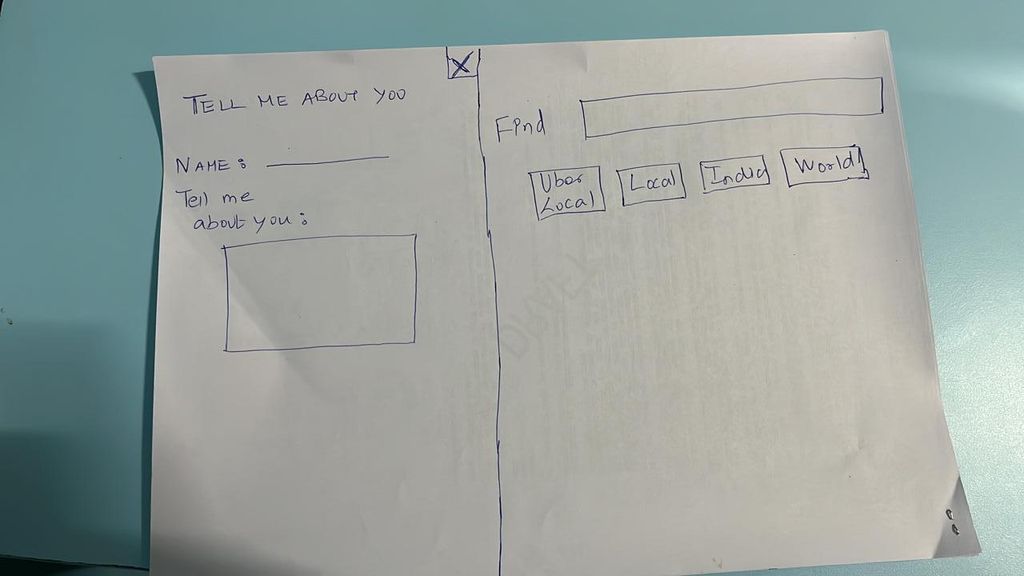 X
TELL ME ABOUT YOU
NAME :
Tell me
about you :
Find
Uber
Local
Local
India
World!